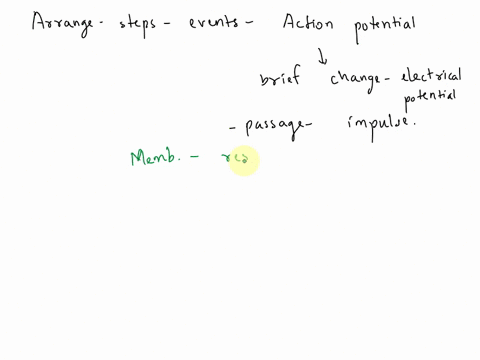 Arrange - steps - events - Action potential
↓
brief change - electrical
potential
- passage - impulse.
Memb. - res